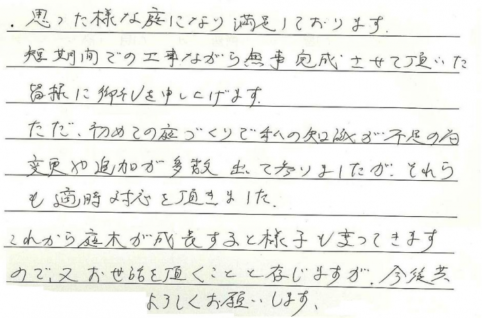 ・思った様な庭になり満足しております。
短期間での工事ながら無事完成させて頂いた
皆様に御礼を申し上げます。
ただ、初めての庭づくりで私の知識が不足の為
変更や追加が多数出て参りましたが、それら
も適時対応を頂きました。
これから庭木が成長すると様子も変ってきます
ので、又お世話を頂くことと存じますが、今後共
よろしくお願いします。